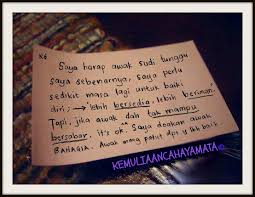 Saya harap awak sudi tunggu
saya sebenarnya, saya perlu
sedikit masa lagi untuk baiki
diri; → lebih bersedia, lebih beriman.
Tapi, jika awak dah tak mampu
bersabar, it's ok. Saya doakan awak
BAHAGIA. Awak orang patut dpt yg lbh baik
KEMULIAANCAHAYAMATA©